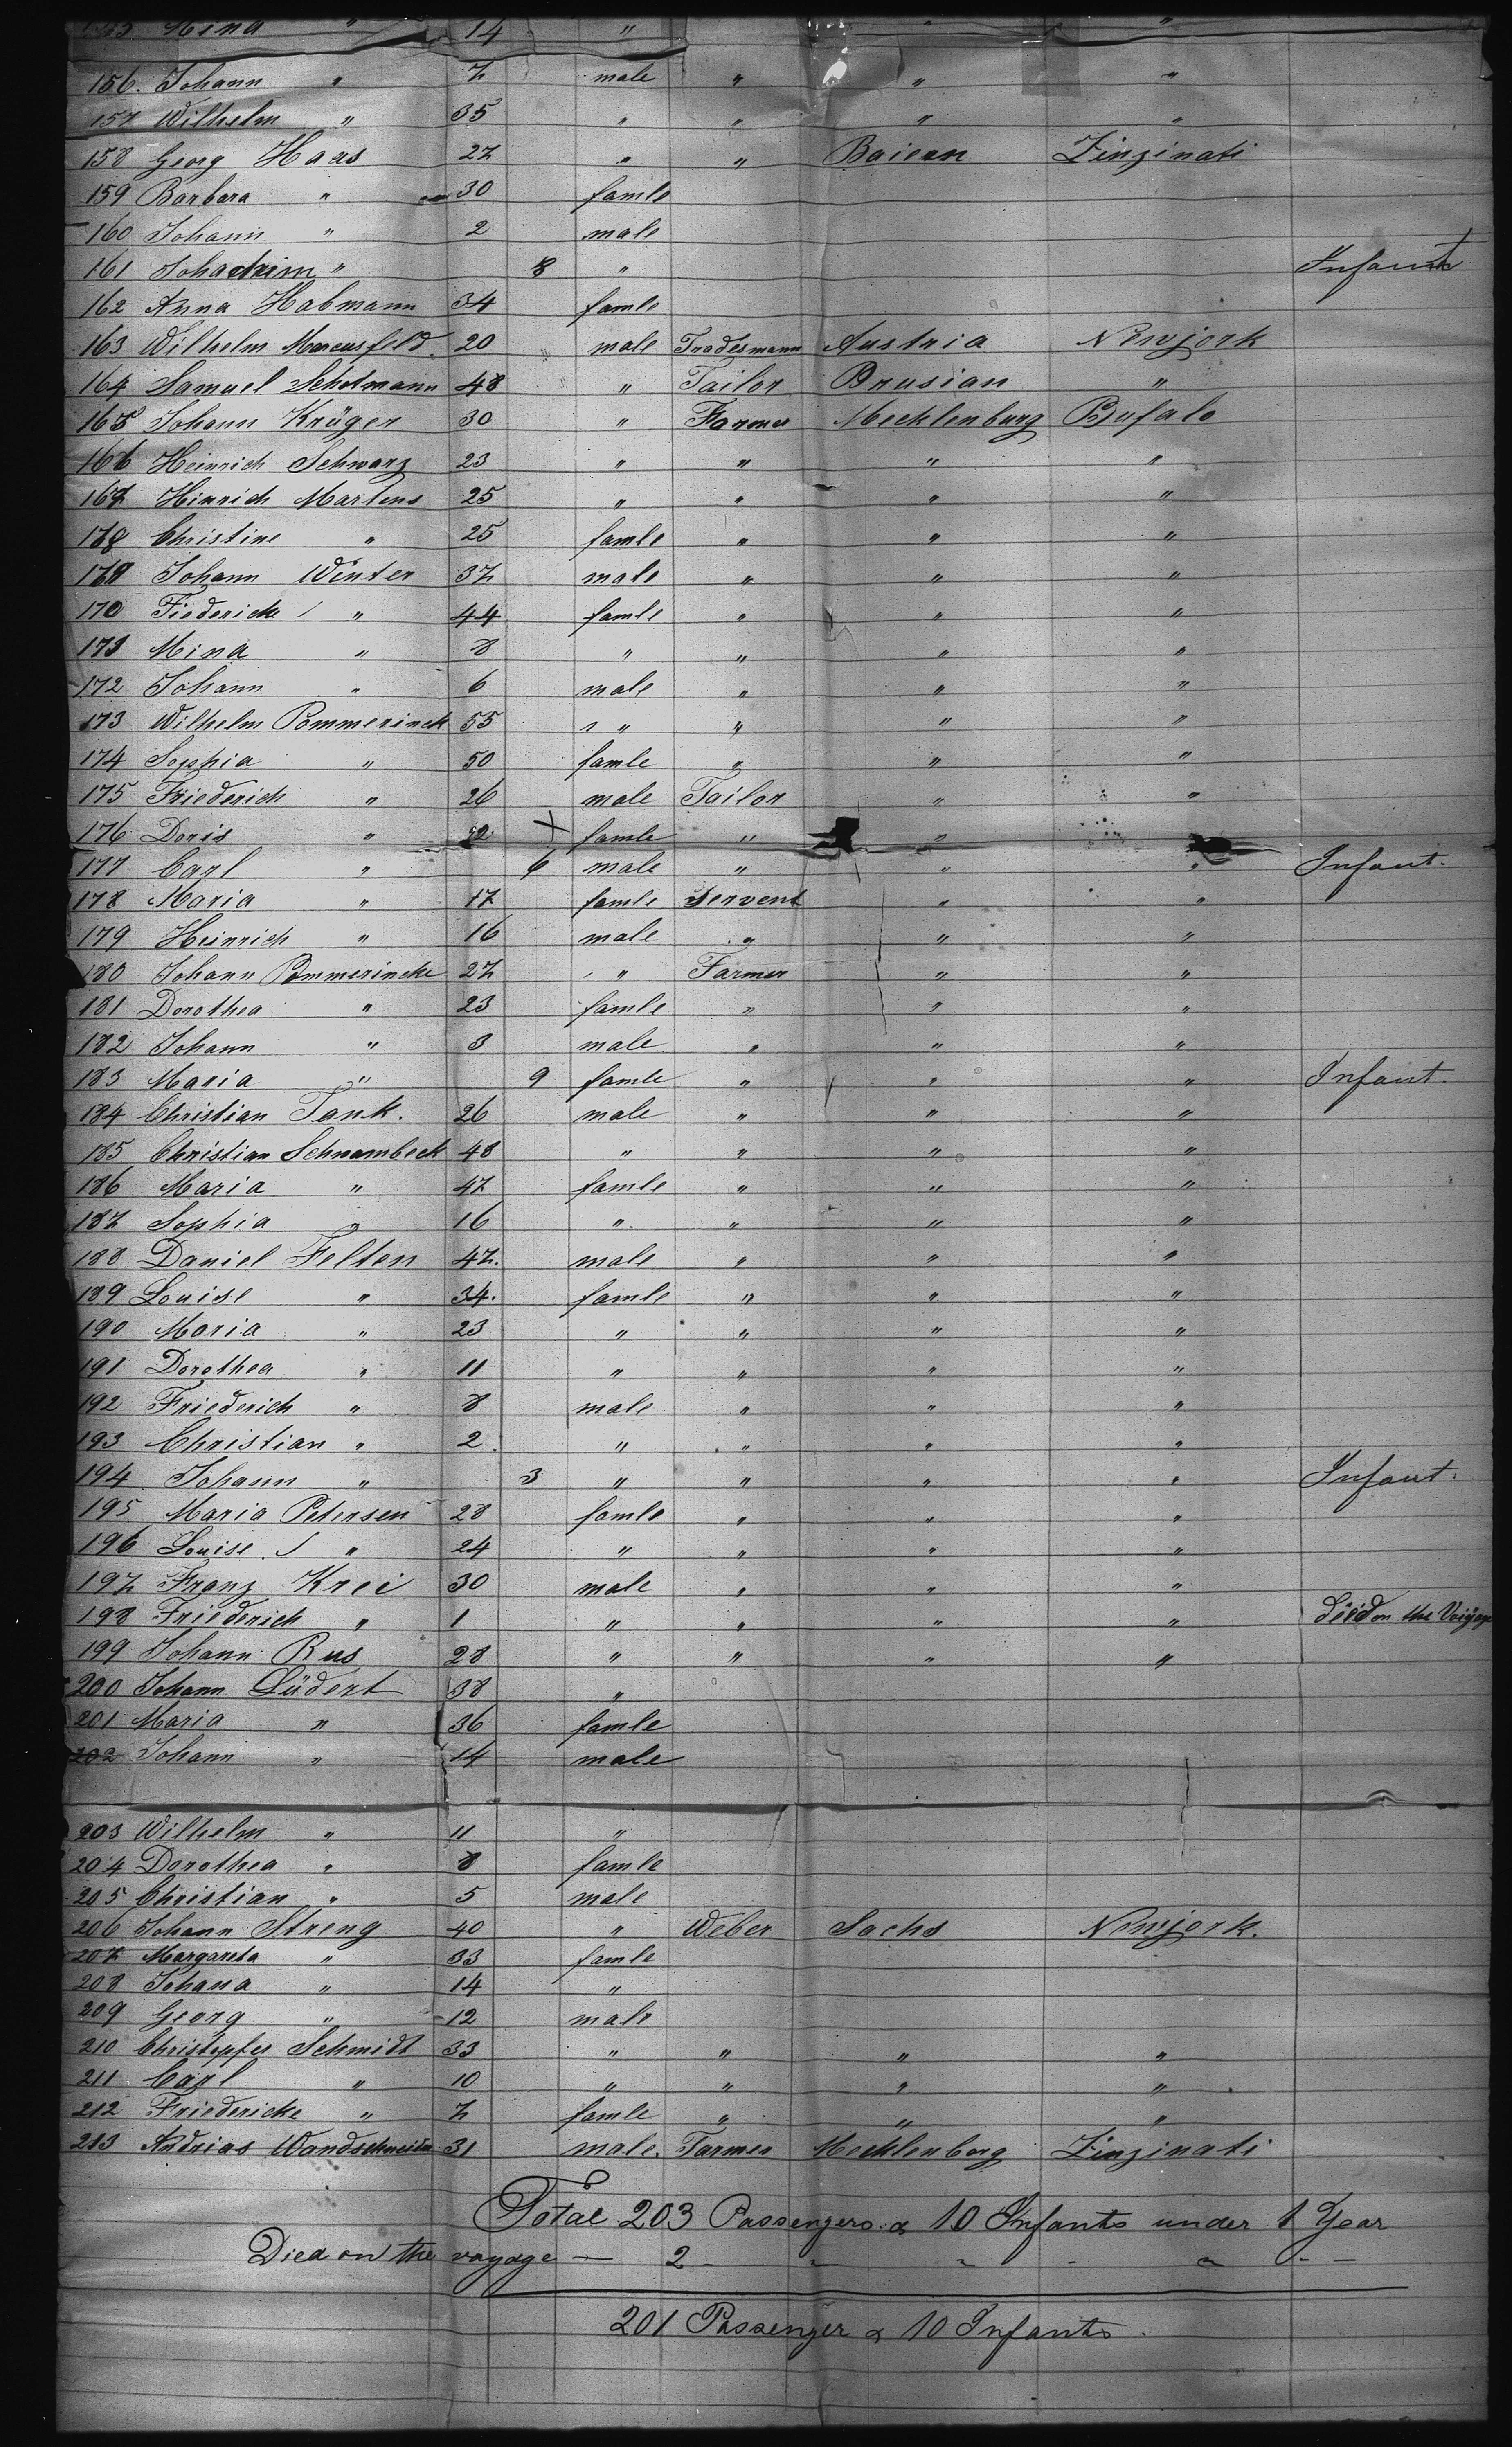 Mina " 14 " " "
156. Johann " 7 male " " "
157 Wilhelm " 35 " " " "
158 Georg Haas 27 " " Baiern Zinzinati
159 Barbara " 30 famle
160 Johann " 2 male
161 Johachim " 8 " Infant
162 Anna Habmann 34 famle
163 Wilhelm Marcusfeld 20 male Tradesmann Austria Newjork
164 Samuel Schotmann 48 " Tailor Prusian "
165 Johann Krüger 30 " Farmer Mecklenburg Bufalo
166 Heinrich Schwarz 23 " " " "
167 Hinrich Martens 25 " " " "
168 Christine " 25 famle " " "
169 Johann Winter 37 male " " "
170 Fiedericke " 44 famle " " "
171 Mina " 8 " " " "
172 Johann " 6 male " " "
173 Wilhelm Pommerinck 55 " " " "
174 Sophia " 50 famle " " "
175 Friederich " 26 male Tailor " "
176 Doris " 22 X famle " "
177 Carl " 6 male " " " Infant.
178 Maria " 17 famle Servent " "
179 Heinrich " 16 male " " "
180 Johann Pommerincke 27 " Farmer " "
181 Dorothea " 23 famle " " "
182 Johann " 3 male " " "
183 Maria " 9 famle " " " Infant.
184 Christian Tank. 26 male " " "
185 Christian Schnambeck 48 " " " "
186 Maria " 47 famle " " "
187 Sophia " 16 " " " "
188 Daniel Felten 47. male " " "
189 Louise " 34. famle " " "
190 Maria " 23 " " " "
191 Dorothea " 11 " " " "
192 Friederich " 8 male " " "
193 Christian " 2 " " " "
194 Johann " 3 " " " " Infant.
195 Maria Petersen 28 famle " " "
196 Louise " 24 " " " "
197 Franz Krei 30 male " " "
198 Friederich " 1 " " " " died on the Voiyage
199 Johann Rus 28 " " " "
200 Johann Lüdert 38 "
201 Maria " 36 famle
202 Johann " 14 male
203 Wilhelm " 11 "
204 Dorothea " 8 famle
205 Christian " 5 male
206 Johann Streng 40 " Weber Sachs Newjork.
207 Margareta " 33 famle
208 Johana " 14 "
209 Georg " 12 male
210 Christopfer Schmidt 33 " " " "
211 Carl " 10 " " " "
212 Friedericke " 7 famle " " "
213 Andrias Wandschneider 31 male. Farmer Mecklenborg Zinzinati
Total 203 Passengers & 10 Infants under 1 Year
Died on the voyage — 2 - - - - - - -
201 Passenger & 10 Infants.